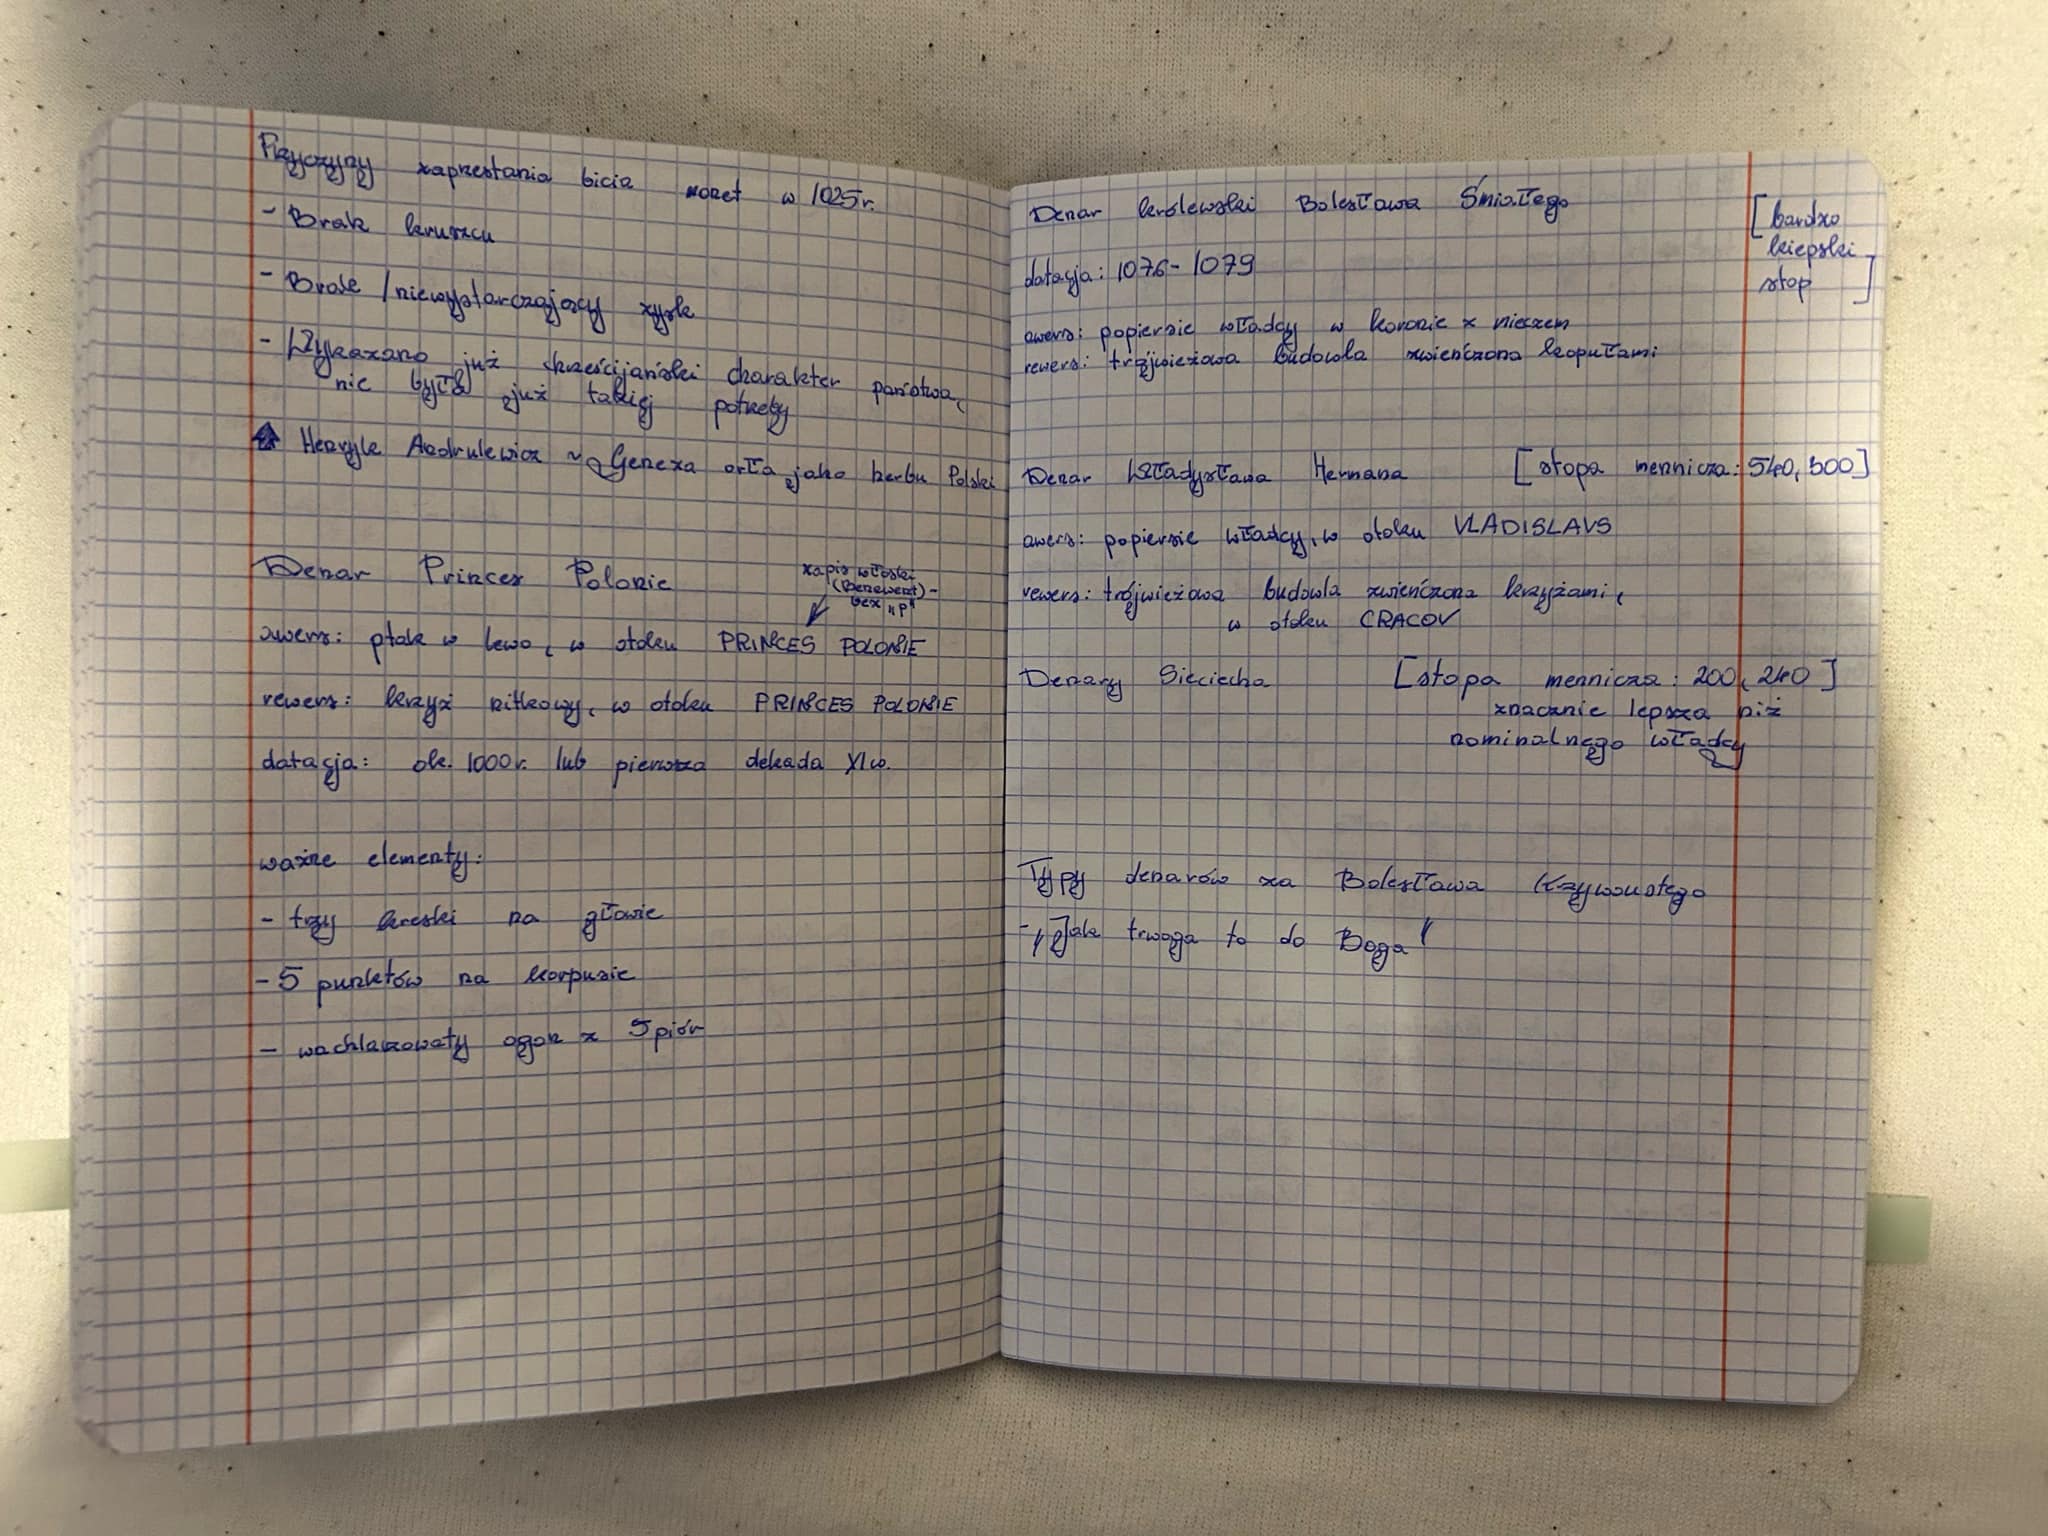 Przyczyny zaprzestania bicia monet w 1025r.
- Brak kruszcu
- Brak / niewystarczający zysk
- Wykazano już chrześcijański charakter państwa,
nie było już takiej potrzeby
Henryk Andrulewicz ~ Geneza orła jako herbu Polski
Denar Princes Polonie
zapis włoski
(Benewent) -
bez "p"
awers: ptak w lewo, w otoku PRINCES POLONIE
rewers: krzyż nitkowy, w otoku PRINCES POLONIE
datacja: ok. 1000r. lub pierwsza dekada XIw.
ważne elementy:
- trzy kreski na głowie
- 5 punktów na korpusie
- wachlarzowaty ogon z 5 piór
Denar królewski Bolesława Śmiałego
[bardzo
kiepski
stop]
datacja: 1076-1079
awers: popiersie władcy w koronie z mieczem
rewers: trójwieżowa budowla zwieńczona kopułami
Denar Władysława Hermana [stopa mennicza: 540, 300]
awers: popiersie władcy, w otoku VLADISLAVS
rewers: trójwieżowa budowla zwieńczona krzyżami,
w otoku CRACOV
Denary Sieciecha [stopa mennicza: 200, 240]
znacznie lepsza niż
nominalnego władcy
Typy denarów za Bolesława Krzywoustego
- "Jak trwoga to do Boga"